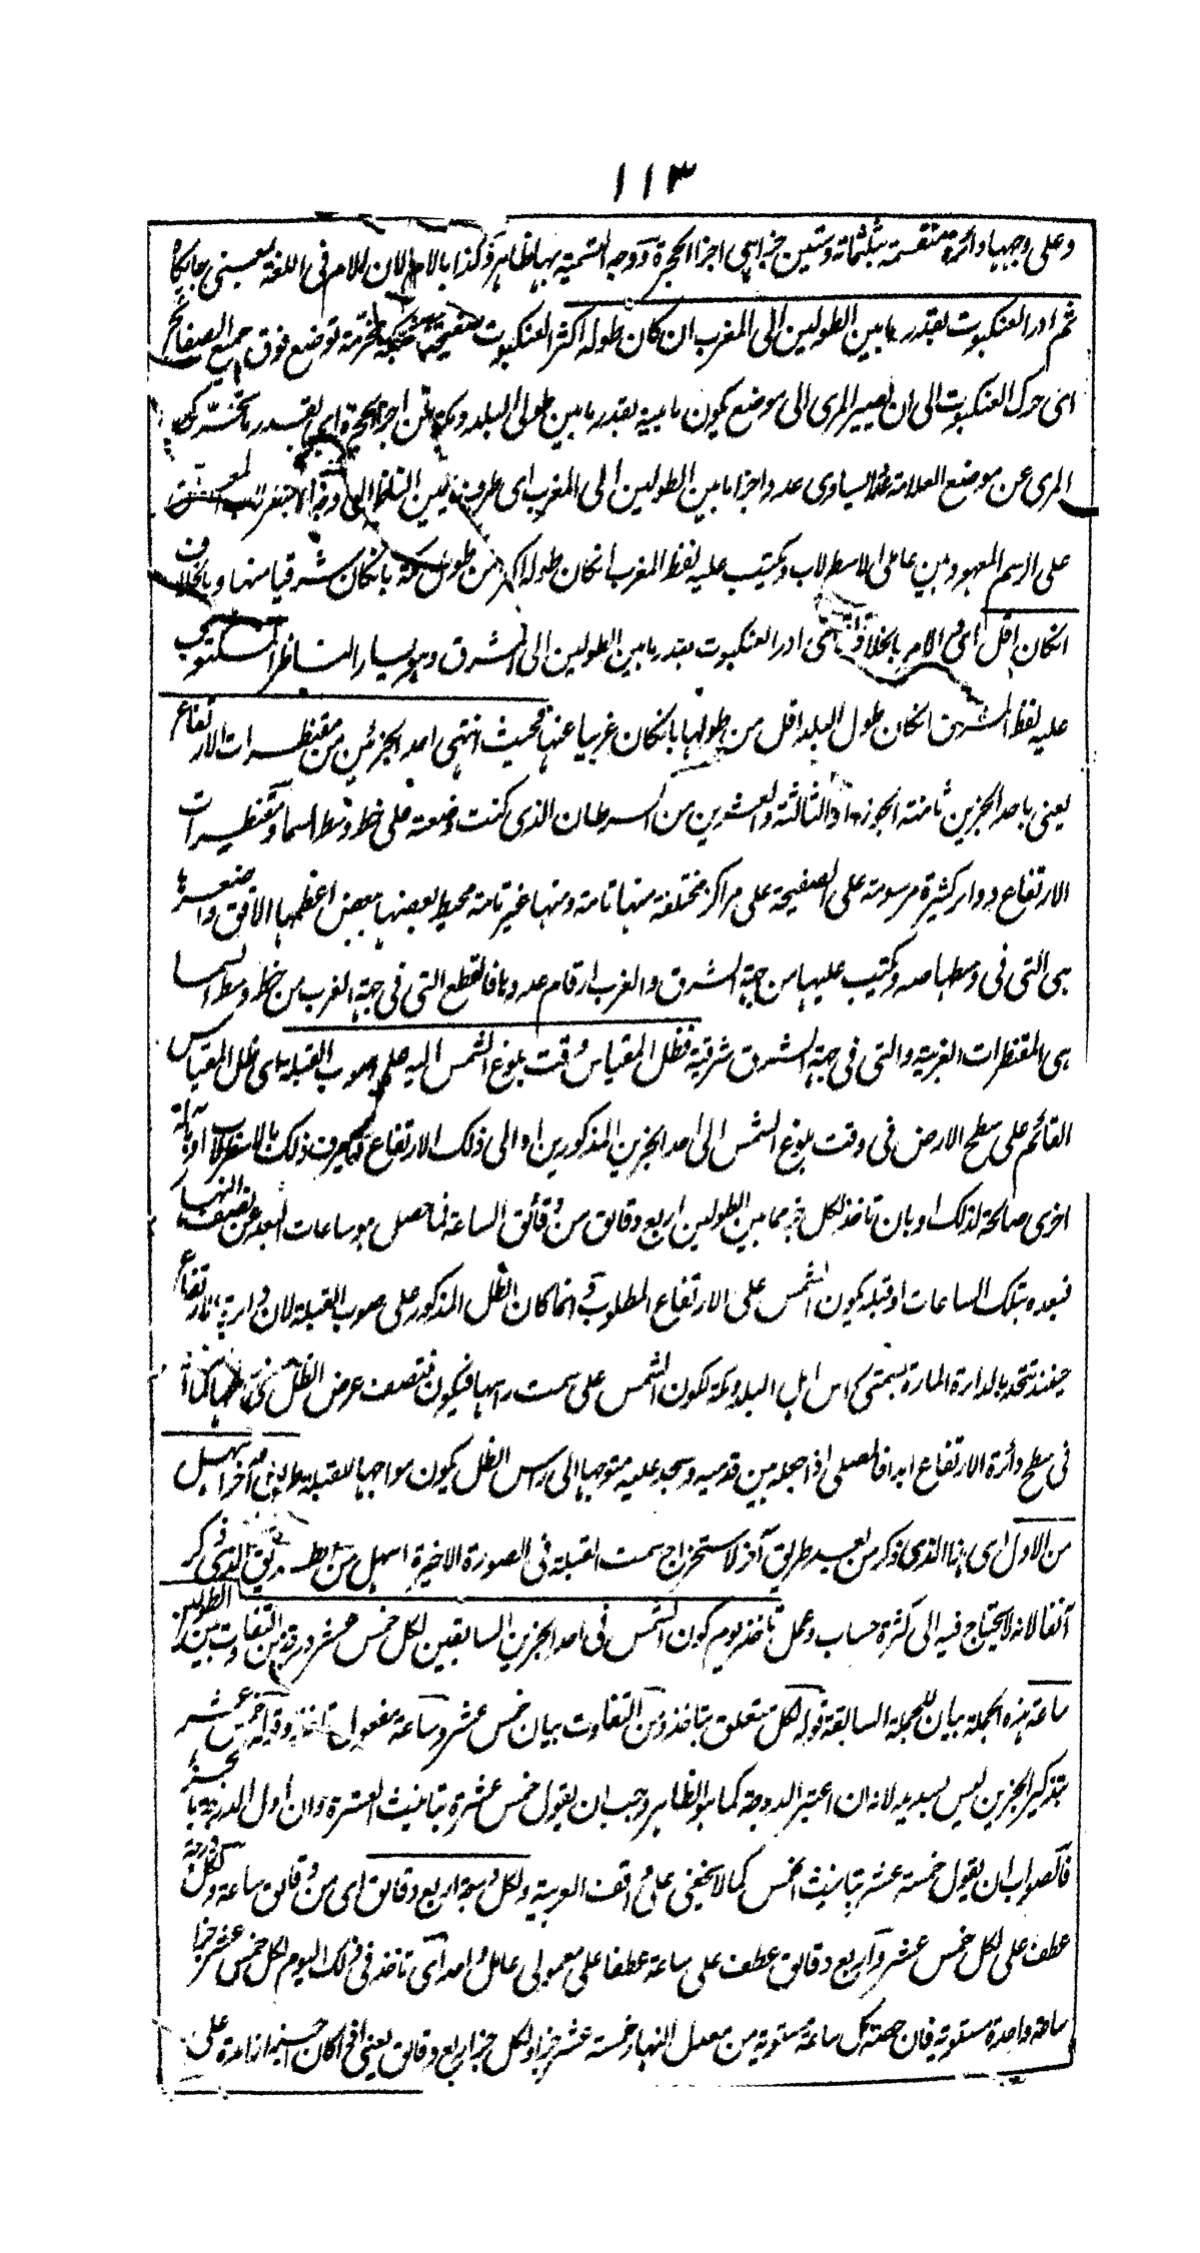 ١١٣
وعلى وجهها دائرة منقسمة بثلثمائة وستين جزا هى اجزا الحجرة ووجه التسمية بها ظاهر وكذا بالام لان اللام فى اللغة بمعنى
ثم ادر العنكبوت بقدر ما بين الطولين الى المغرب ان كان طوله اكثر العنكبوت صفيحة مشبكة مخرمة توضع فوق جميع الصفائح
اى حرك العنكبوت الى ان يصير المرى الى موضع يكون ما بينه بقدر ما بين طولى البلد ومكة من اجزا الحجرة اى بقدر ما
المرى عن موضع العلامة مثلا يساوى عدد اجزا ما بين الطولين الى المغرب اى طرف يمين الناظر الى
على الرسم المعهود بين عاملى الاسطرلاب ويكتب عليه لفظ المغرب انكان طوله اكثر من طول مكة بانكان شرقيا منها وبالخلاف
انكان اقل اى الامر بالخلاف اى ادر العنكبوت بقدر ما بين الطولين الى المشرق وهو يسار الناظر المكتوب
عليه لفظ المشرق انكان طول البلد اقل من طولها بانكان غربيا عنها فحيث انتهى احد الجزئين من مقنطرات الارتفاع
يعنى باحد الجزين ثامنة الجوزاء والثالثة والعشرين من السرطان الذى كنت وضعته على خط وسط السما ومقنطرات
الارتفاع دوائر كثيرة مرسومة على الصفيحة على مراكز مختلفة منها تامة ومنها غير تامة محيط بعضها ببعض اعظمها الافق واصغرها
هى التى فى وسطها صه وكتب عليها من جهة المشرق والمغرب ارقام عددها فالقطع التى فى جهة المغرب من خط وسط السما
هى المقنطرات الغربية والتى فى جهة المشرق شرقية فظل المقياس وقت بلوغ الشمس اليه على صوب القبلة اى ظل المقياس
القائم على سطح الارض فى وقت بلوغ الشمس الى احد الجزين المذكورين او الى ذلك الارتفاع فيعرف ذلك بالاسطرلاب او بآلة
اخرى صالحة لذلك او بان تاخذ لكل جز مما بين الطولين اربع دقائق من دقائق الساعة فما حصل هو ساعات البعد عن نصف النهار
فبعده بتلك الساعات او قبله يكون الشمس على الارتفاع المطلوب وانما كان الظل المذكور على صوب القبلة لان دائرة ارتفاع
حينئذ تتحد بالدائرة المارة بسمتى راس اهل البلد ومكة لكون الشمس على سمت راسها فيكون منتصف عرض الظل
فى سطح دائرة الارتفاع ابدا فالمصلى اذا جعله بين قدميه وسجد عليه متوجها الى راس الظل يكون مواجها للقبلة طريق آخر اسهل
من الاول اى هذا الذى اذكر من بعد طريق آخر لاستخراج سمت القبلة فى الصورة الاخيرة اسهل من الطريق الذى ذكر
آنفا لانه لا يحتاج فيه الى كثرة حساب وعمل تاخذ يوم كون الشمس فى احد الجزين السابقين لكل خمس عشر درجة من التفاوت بين الطولين
ساعة هذه الجملة بيان للجملة السابقة قوله لكل متعلق بتاخذ ومن التفاوت بيان خمس عشر وساعة مفعول تاخذ وقوله خمس عشر
بتذكير الجزين ليس بسديد لانه ان اعتبر الدرجة كما هو الظاهر وجب ان يقول خمس عشرة بتانيث العشرة وان اول الدرجة بالجز
فالصواب ان يقول خمسة عشر بتانيث الخمس كما لا يخفى على واقف العربية ولكل درجة اربع دقائق اى من دقائق ساعة ولكل درجة
عطف على لكل خمس عشر واربع دقائق عطف على ساعة عطفا على معمولى عامل واحد اى تاخذ فى ذلك اليوم لكل خمس عشر جزا
ساعة واحدة مستوية فان حصة كل ساعة مستوية من معدل النهار خمسة عشر جزا ولكل جزا اربع دقائق يعنى اذا كان اجزا زائدة على